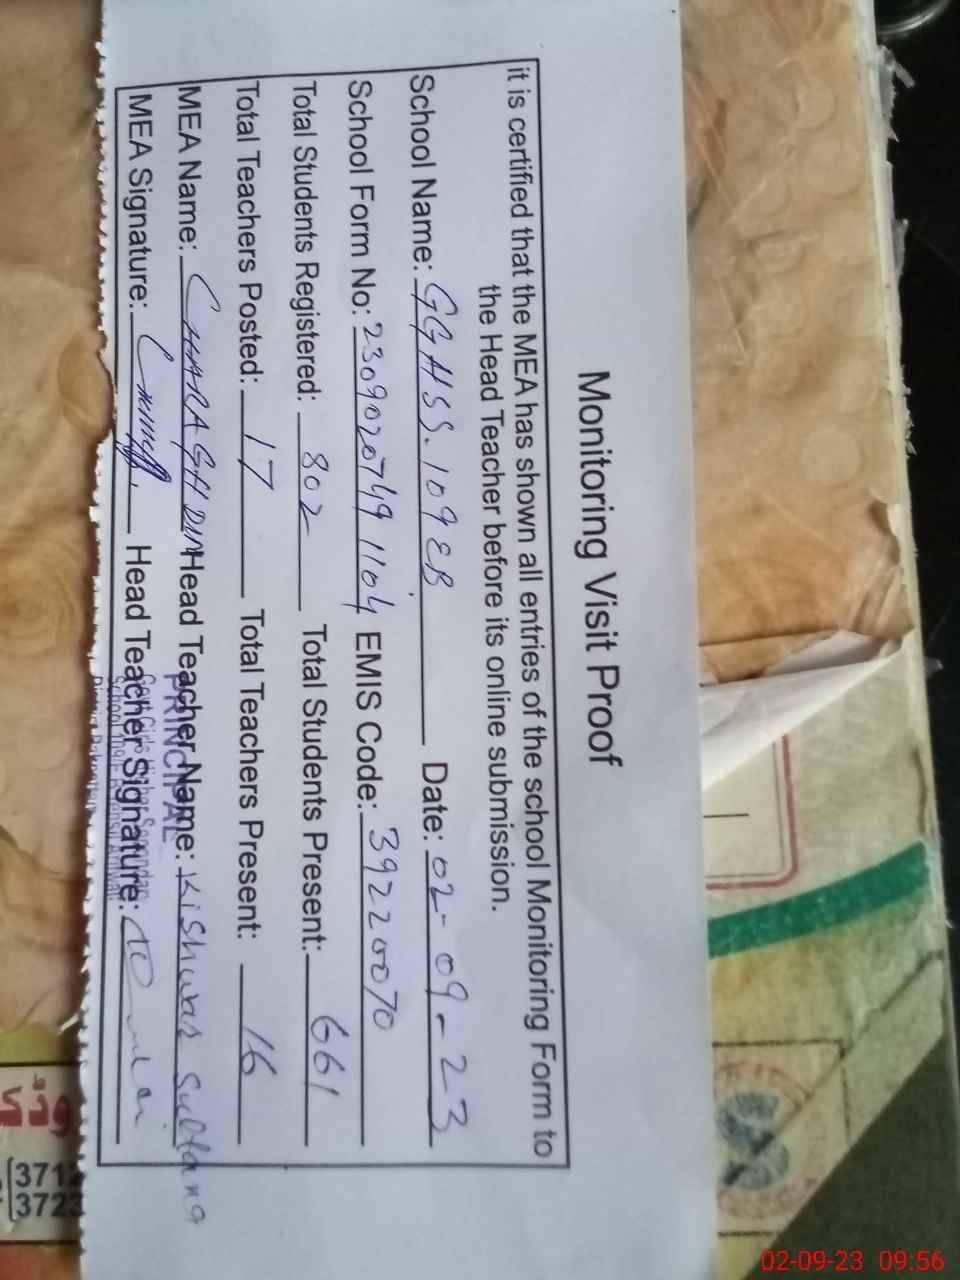 Monitoring Visit Proof
it is certified that the MEA has shown all entries of the school Monitoring Form to
the Head Teacher before its online submission.
School Name: GGHSS. 109 EB Date: 02-09-23
School Form No: 23090207491104 EMIS Code: 39220070
Total Students Registered: 802 Total Students Present: 661
Total Teachers Posted: 17 Total Teachers Present: 16
MEA Name: Head Teacher Name: Kishwar Sultana
MEA Signature: Head Teacher Signature:
PRINCIPAL
Govt Girls Higher Secondary
3712
3723
02-09-23 09:56